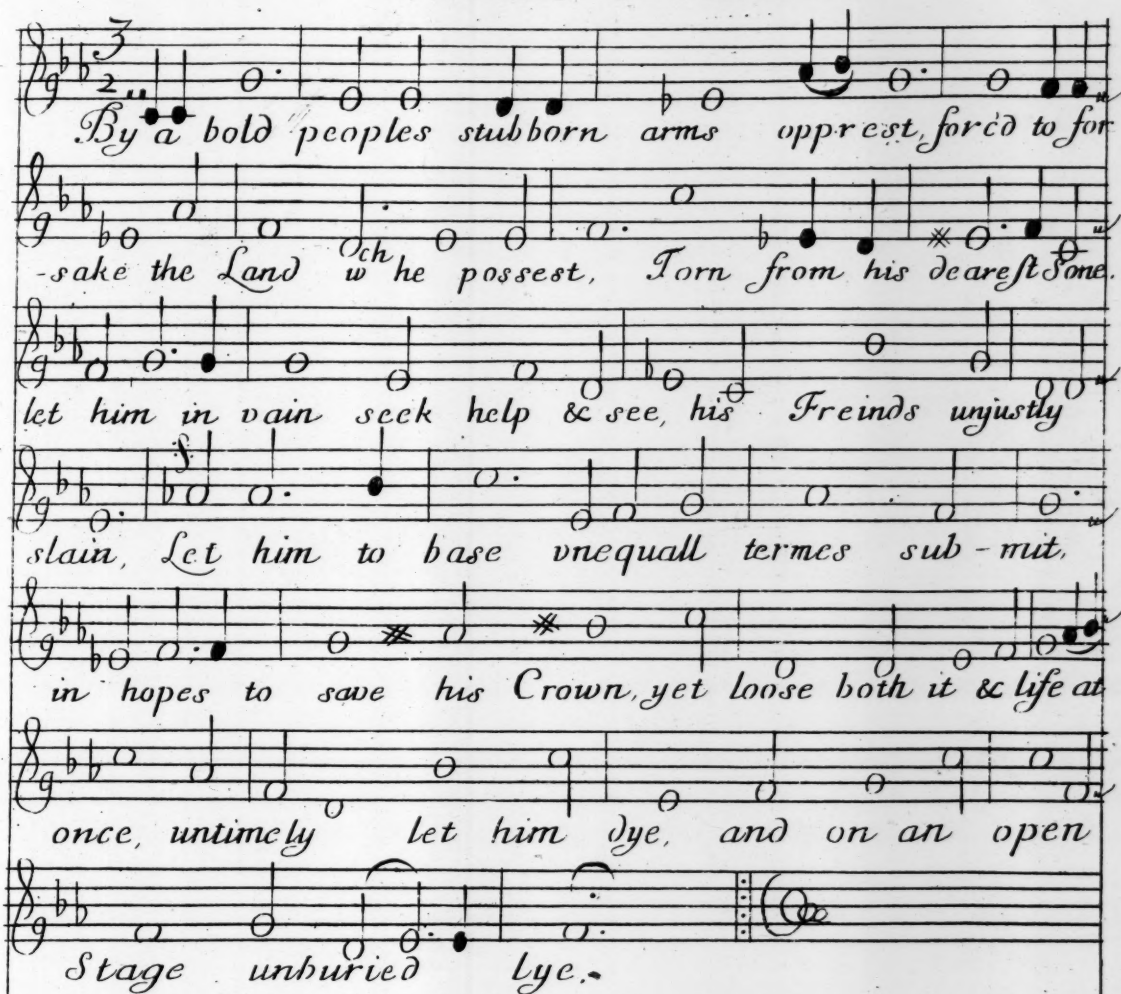 By a bold peoples stubborn arms opprest, forc'd to for
-sake the Land wch he possest, Torn from his dearest Sone,
let him in vain seek help & see, his Freinds unjustly
slain, Let him to base vnequall termes sub-mit,
in hopes to save his Crown, yet loose both it & life at
once, untimely let him dye, and on an open
Stage unburied lye.